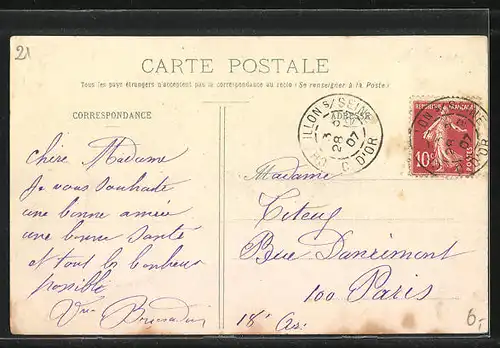 21
CARTE POSTALE
Tous les pays étrangers n'acceptent pas la correspondance au recto (Se renseigner à la Poste)
CORRESPONDANCE
ADRESSE
ILLON s/ SEINE
28
07
C. D'OR
REPUBLIQUE FRANÇAISE
10
POSTES
Chère Madame
Je vous souhaite
une bonne année
une bonne santé
et tout le bonheur
possible
Madame
Titeux
Rue Danrémont
100 Paris
18e Ar.
6,-